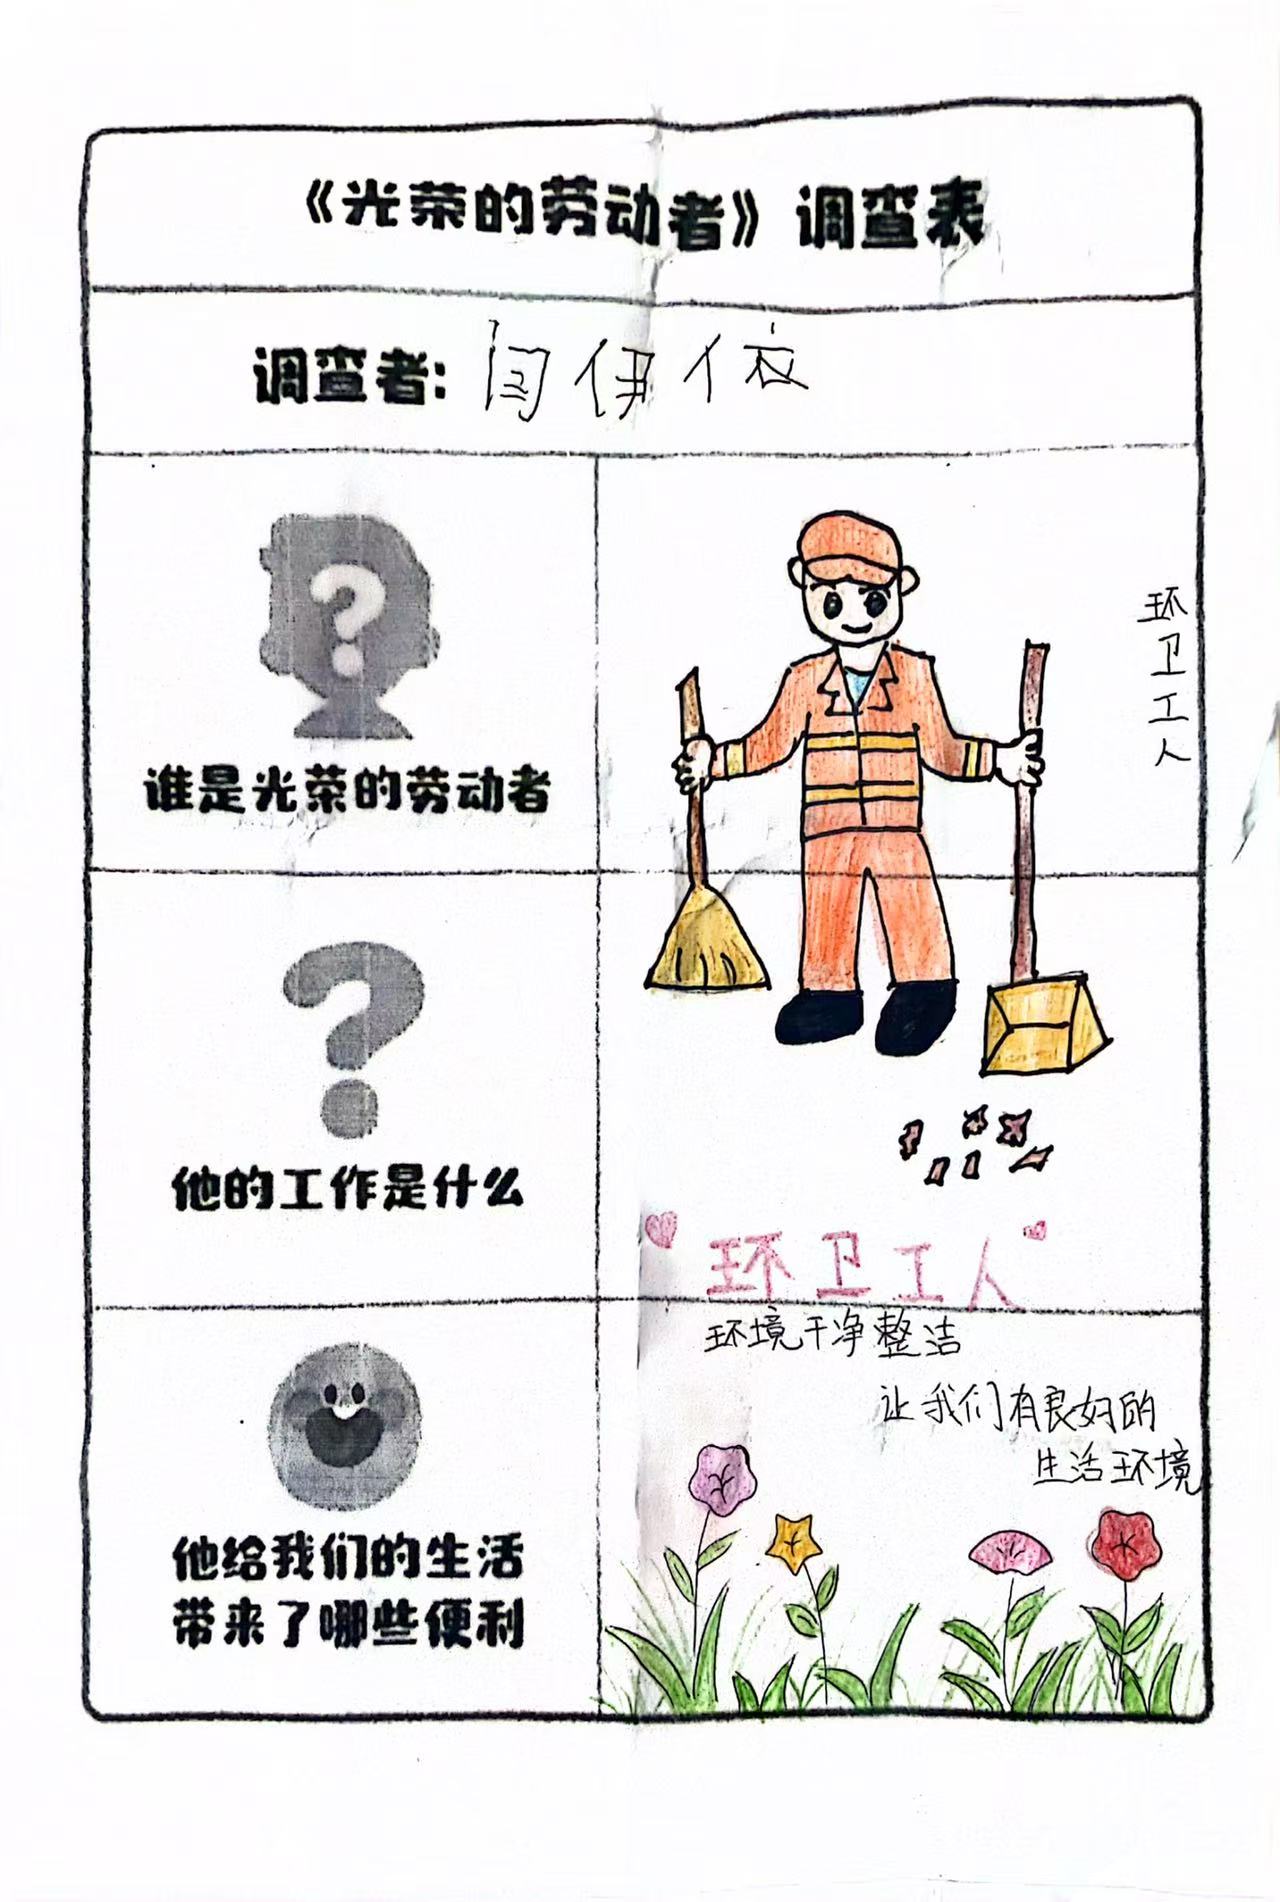 《光荣的劳动者》调查表
调查者：闫伊依
谁是光荣的劳动者
环卫工人
他的工作是什么
环卫工人
他给我们的生活
带来了哪些便利
环境干净整洁
让我们有良好的
生活环境